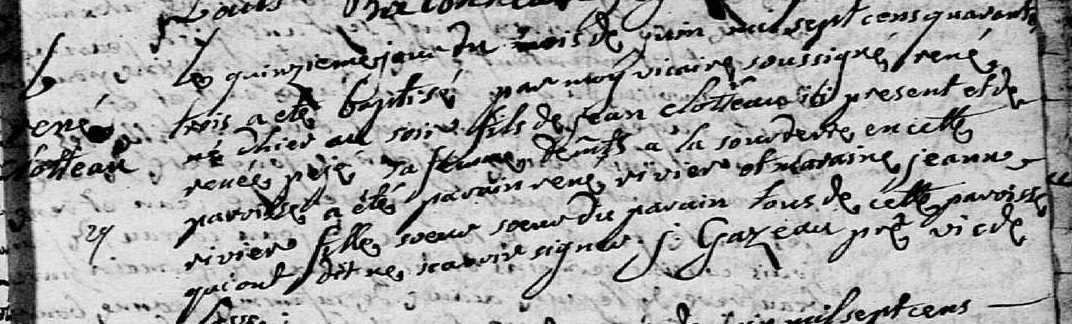 b
rené
cloteau
29
le quinzieme jour du mois de juin mil sept cens quarante
trois a eté baptisé par moy vicaire soussigné, rené,
né d'hier au soir fils de jean clotteau ici present et de
renée sa femme, demts à la sourderie en cette
paroisse, a été parain rené rivier et maraine jeanne
rivier fille soeur du parain tous de cette paroisse
qui ont dit ne scavoir signer, J: Gazeau pre vic de
mil sept cens